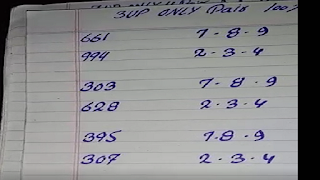 3UP ONLY Pair 100%
661 7-8-9
994 2-3-4
303 7-8-9
628 2-3-4
395 7-8-9
307 2-3-4